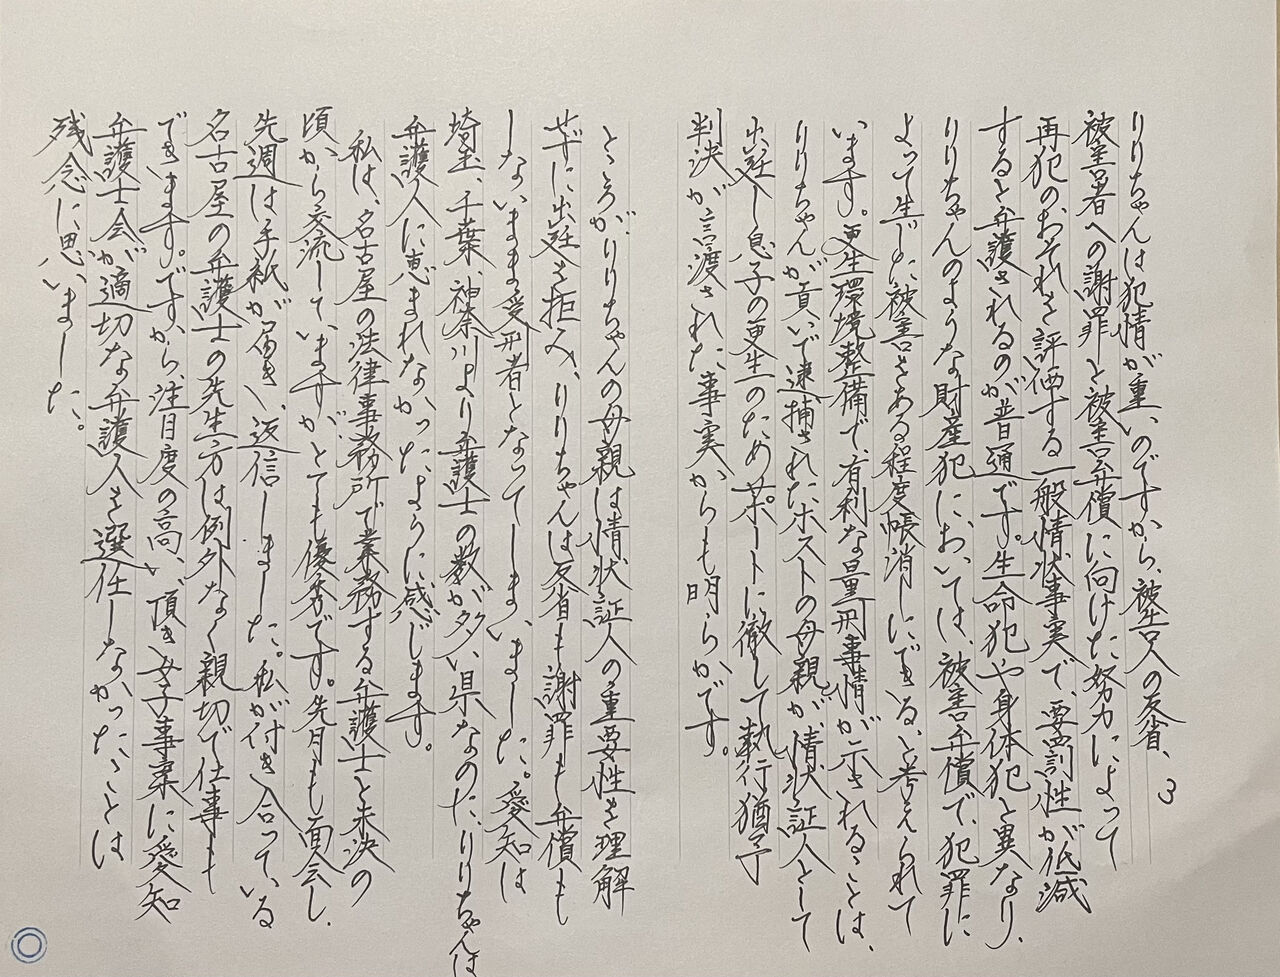 3
りりちゃんは犯情が重いのですから、被告人の反省、
被害者への謝罪と被害弁償に向けた努力によって
再犯のおそれを評価する一般情状事実で、要罰性が低減
すると弁護されるのが普通です。生命犯や身体犯と異なり、
りりちゃんのような財産犯においては、被害弁償で、犯罪に
よって生じた被害をある程度帳消しにできると考えられて
います。更生環境整備で、有利な量刑事情が示されることは、
りりちゃんが貢いで逮捕されたホストの母親が、情状証人として
出廷し息子の更生のためサポートに徹して執行猶予
判決が言渡された事実からも明らかです。
ところが、りりちゃんの母親は情状証人の重要性を理解
せずに出廷を拒み、りりちゃんは反省も謝罪も弁償も
しないまま受刑者となってしまいました。愛知は
埼玉、千葉、神奈川より弁護士の数が多い県なのに、りりちゃんは
弁護人に恵まれなかったように感じます。
私は、名古屋の法律事務所で業務する弁護士と未決の
頃から交流していますがとても優秀です。先月も面会し、
先週は手紙が届き、返信しました。私が付き合っている
名古屋の弁護士の先生方は例外なく親切で仕事も
できます。ですから、注目度の高い、頂き女子事案に愛知
弁護士会が適切な弁護人を選任しなかったことは
残念に思いました。